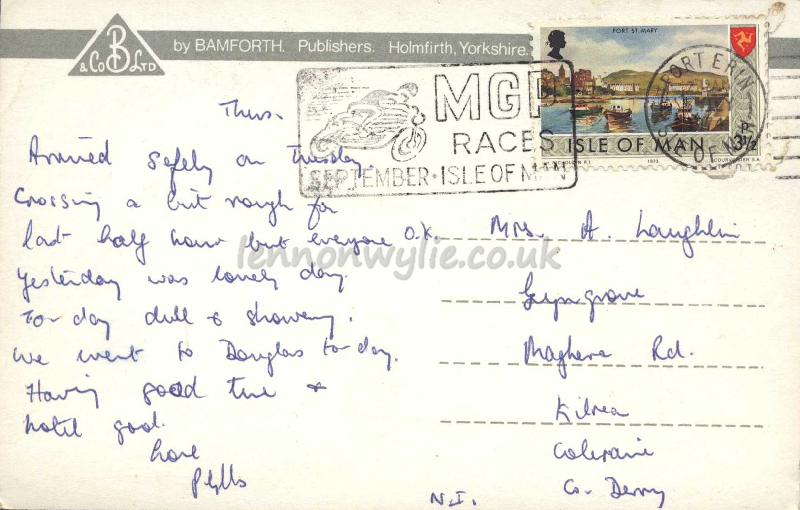 B
& Co LTD
by BAMFORTH. Publishers. Holmfirth, Yorkshire.
MGP
RACES
SEPTEMBER · ISLE OF MAN
PORT ST. MARY
ISLE OF MAN
3½
P
1973
COURVOISIER S.A.
PORT ERIN
ISLE OF MAN
Thurs.
Arrived safely on Tuesday.
Crossing a bit rough for
last half hour but everyone O.K.
Yesterday was lovely day.
To-day dull & showery.
We went to Douglas to-day.
Having good time &
hotel good.
Love
Mrs. A. Laughlin
Maghera Rd.
Kilrea
Coleraine
Co. Derry
N.I.
lennonwylie.co.uk